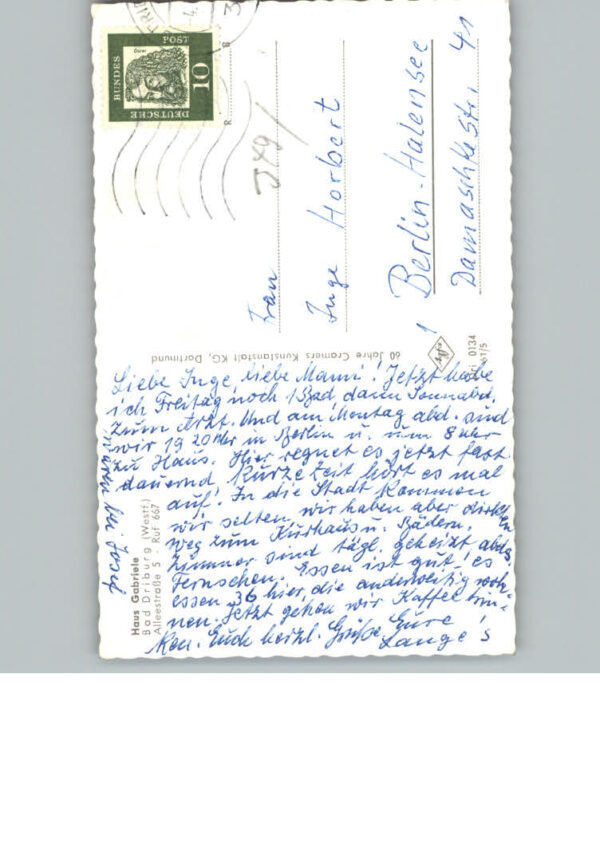 DEUTSCHE
BUNDES
POST
10
Frau
Inge Horbert
1 Berlin-Halensee
Damaschkestr. 41
60 Jahre Cramers Kunstanstalt KG, Dortmund
0134
61/5
Haus Gabriele
Bad Driburg (Westf)
Alleestraße 5 - Ruf 667
Liebe Inge, liebe Mami! Jetzt habe
ich Freitag noch 1 Bad, dann Sonnabd.
zum Arzt. Und am Montag abd. sind
wir 19 20 Uhr in Berlin u. um 8 Uhr
zu Haus. Hier regnet es jetzt fast
dauernd, kurze Zeit hört es mal
auf. In die Stadt kommen
wir selten, wir haben aber direkten
Weg zum Kurhaus u. Bädern.
Zimmer sind tägl. geheizt, abds
Fernsehen. Essen ist gut, es
essen 36 hier, die anderweitig woh-
nen. Jetzt gehen wir Kaffee trin-
ken. Euch herzl. Grüße Eure
Lange's